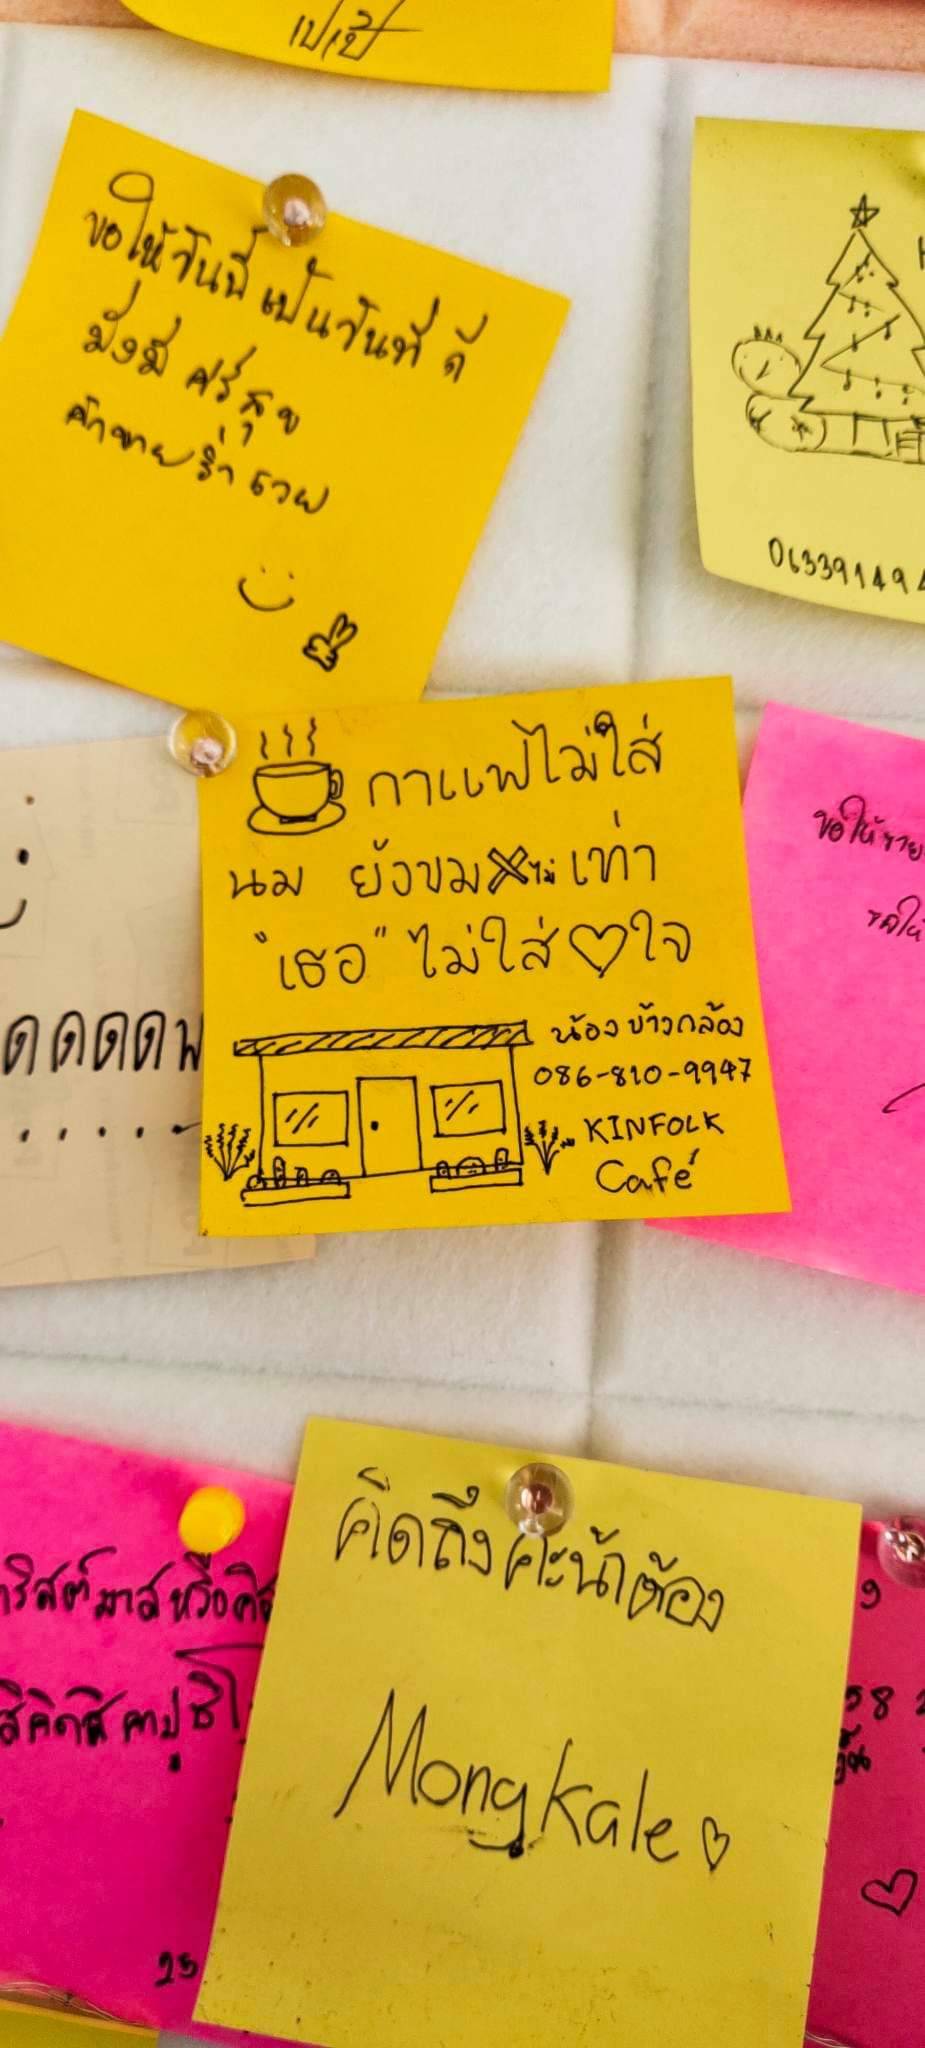 เปเป้
ขอให้วันนี้เป็นวันที่ ดี
มั่งมี ศรีสุข
ค้าขาย ร่ำ รวย
063391494
กาแฟไม่ใส่
นม ยังขม ไม่ เท่า
"เธอ" ไม่ใส่ ใจ
น้องข้าวกล้อง
086-810-9947
KINFOLK
Café
ขอให้ขาย
ขอให้
ดดดดพ
.....
คิดถึงคะน้าต้อง
Mongkale
ริสต์มาสหรือคิส
25
9
58